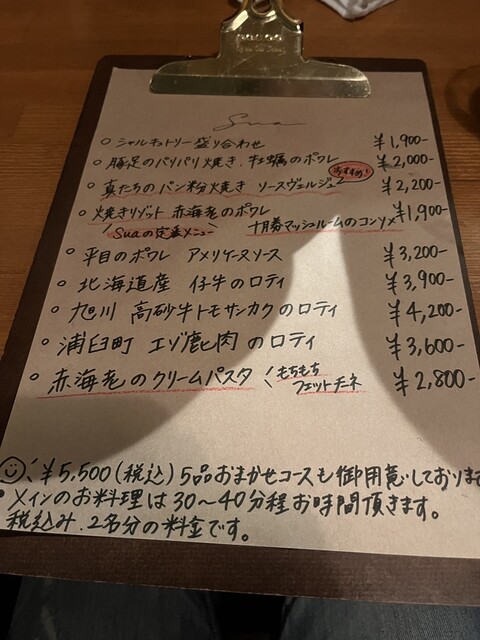 Sua
○ シャルキュトリー盛り合わせ ¥1,900-
○ 豚足のパリパリ焼き、牡蠣のポワレ ¥2,000-
おすすめ!
○ 真たちのパン粉焼き ソースヴェルジュ ¥2,200-
○ 焼きリゾット 赤海老のポワレ ¥1,900-
Suaの定番メニュー 十勝マッシュルームのコンソメ
○ 平目のポワレ アメリケーヌソース ¥3,200-
○ 北海道産 仔牛のロティ ¥3,900-
○ 旭川 高砂牛トモサンカクのロティ ¥4,200-
○ 浦臼町 エゾ鹿肉のロティ ¥3,600-
○ 赤海老のクリームパスタ ¥2,800-
もちもち
フェットチーネ
¥5,500(税込) 5品おまかせコースも御用意しております
• メインのお料理は30〜40分程お時間頂きます。
税込み、2名分の料金です。